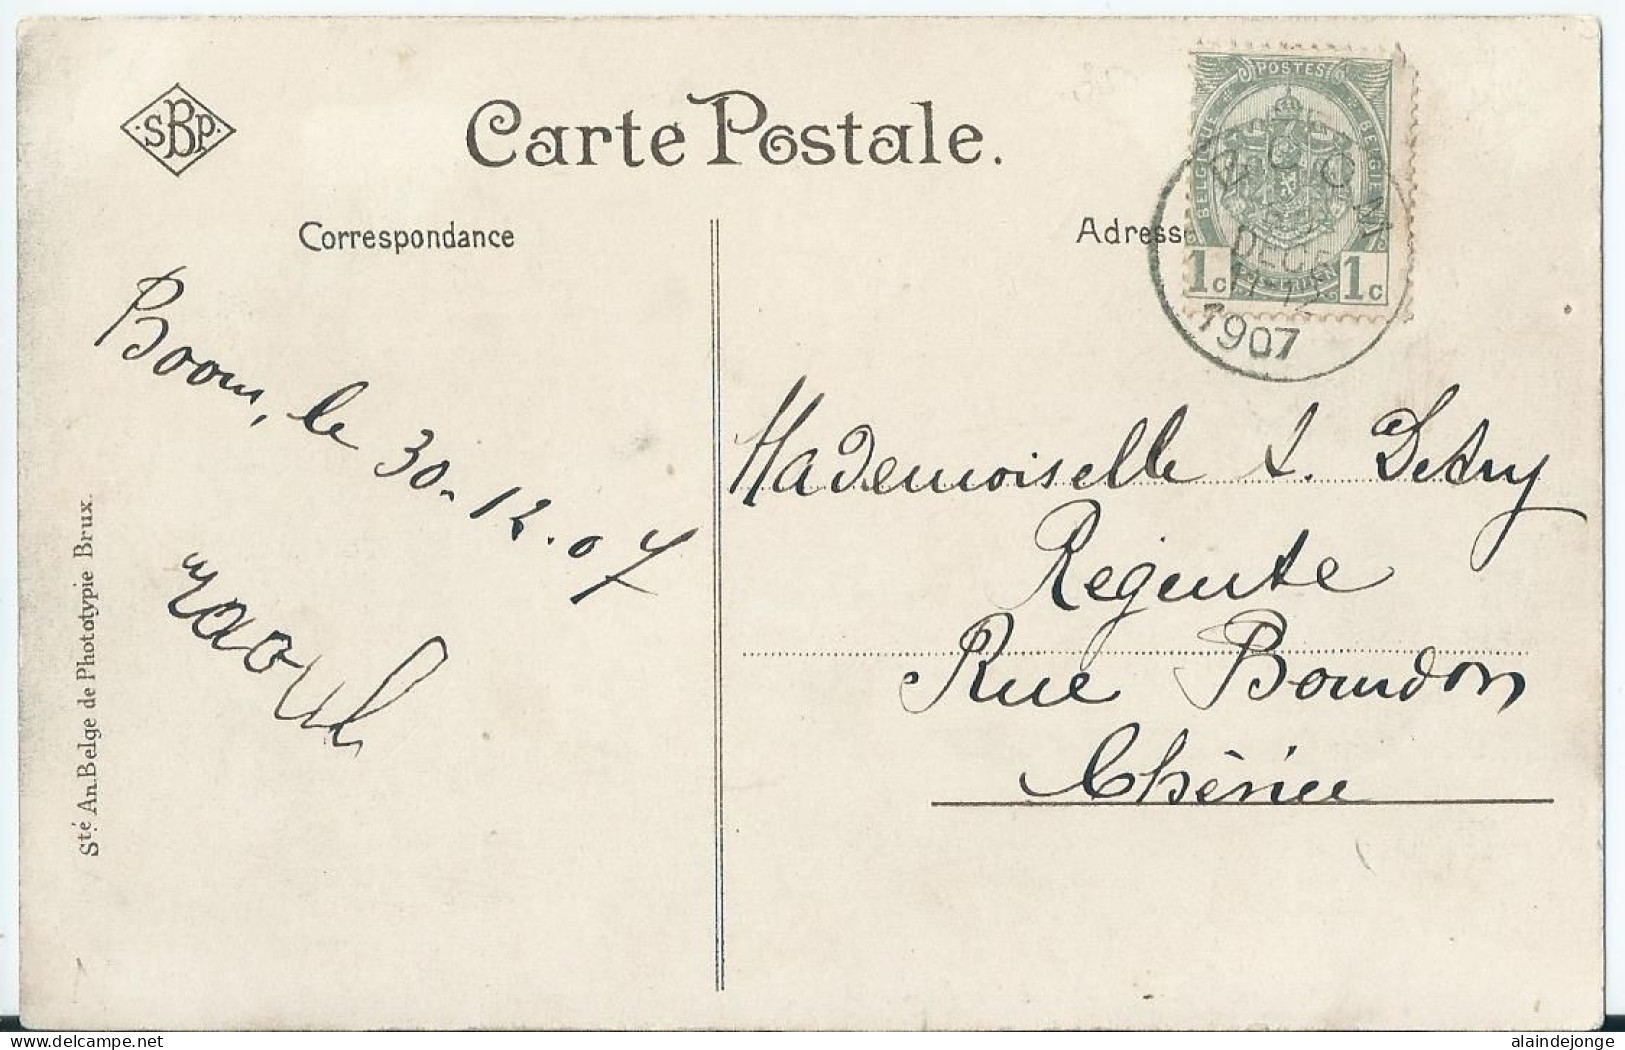 SBP
Carte Postale.
POSTES
BELGIQUE
BELGIE
1c 1c
DEC
1907
Correspondance
Adresse
Boom, le 30-12.07
raoul
Mademoiselle A. Detry
Régente
Rue Bourdon
Chênée
Sté An. Belge de Phototypie Brux.
delcampe.com
alaindejonge